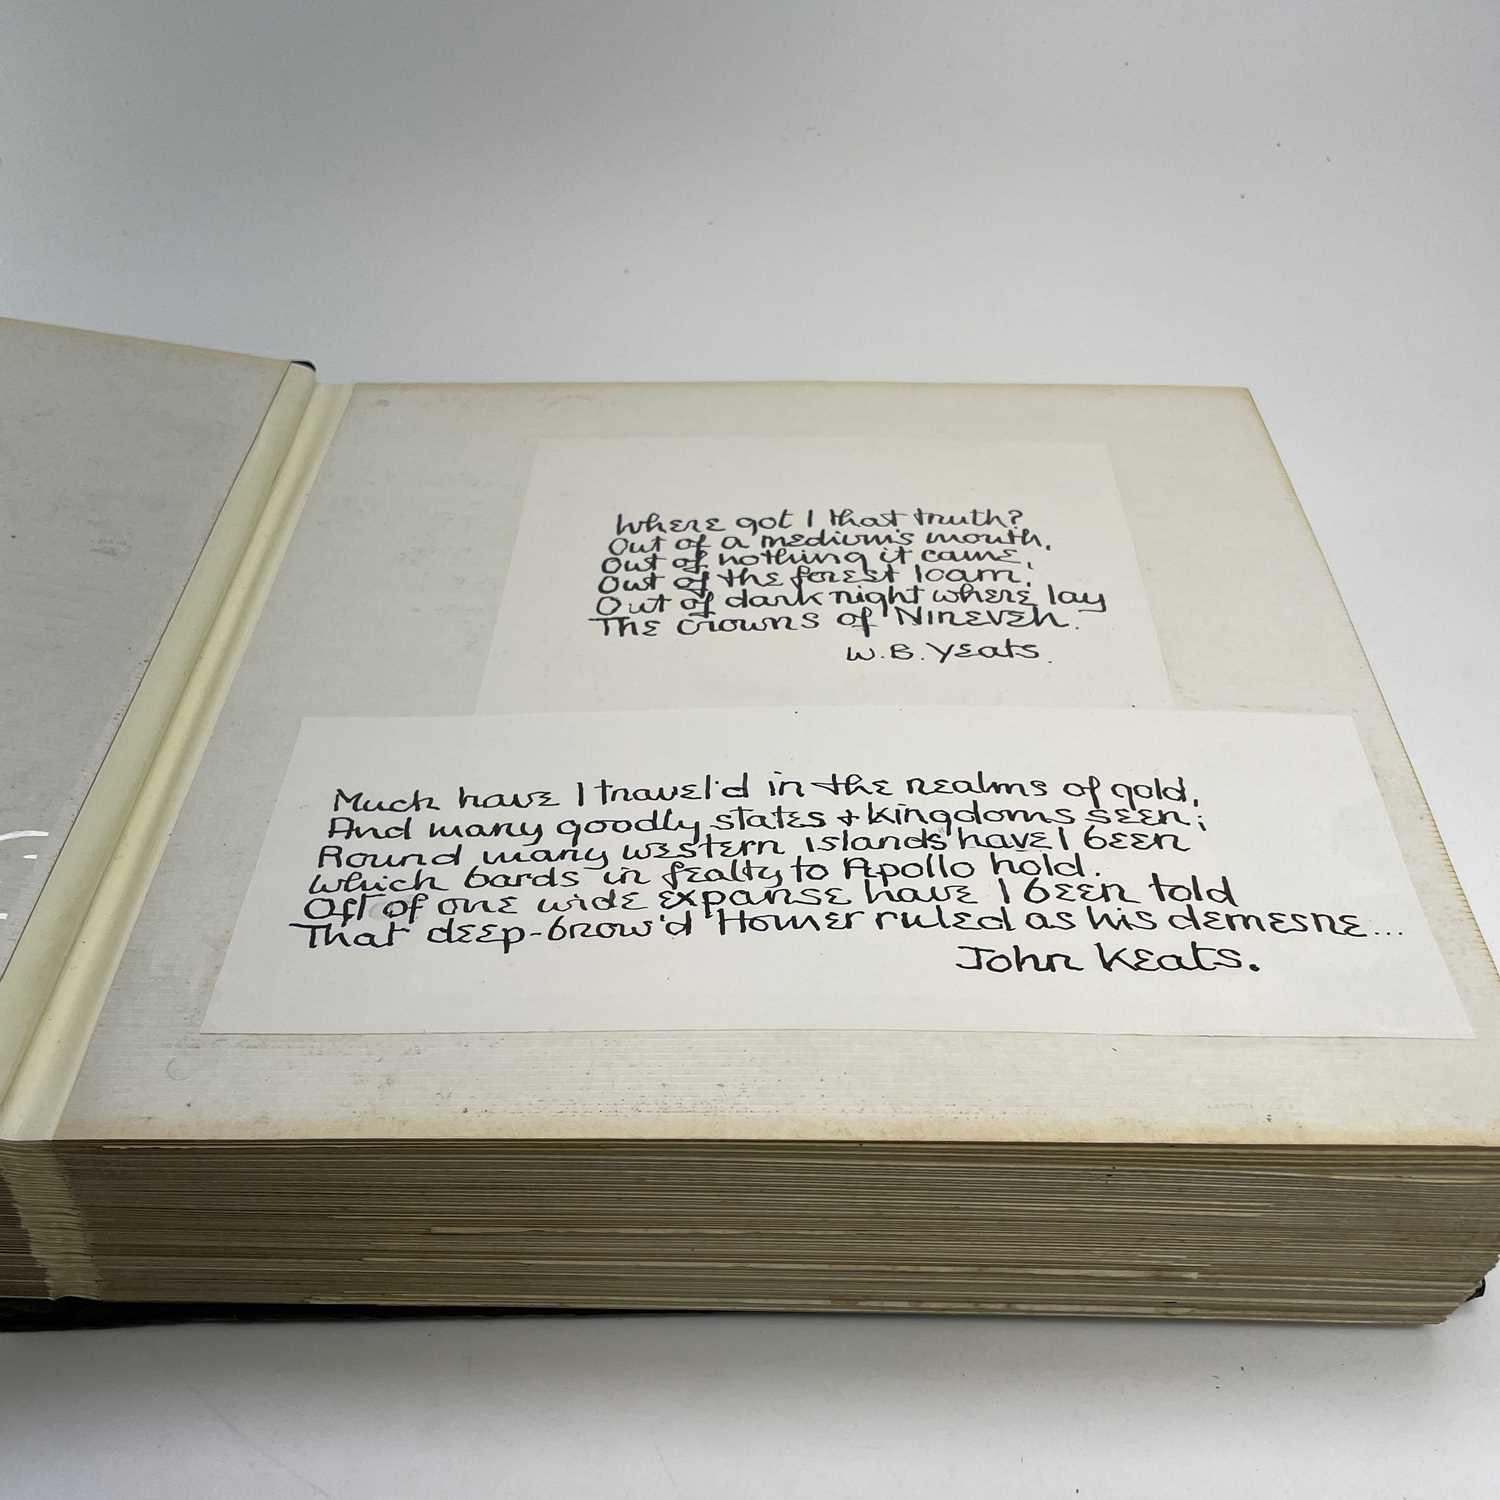 Where got I that truth?
Out of a medium's mouth,
Out of nothing it came,
Out of the forest loam,
Out of dark night where lay
The crowns of Nineveh.
W.B. Yeats.
Much have I travel'd in the realms of gold,
And many goodly states & kingdoms seen;
Round many western islands have I been
Which bards in fealty to Apollo hold.
Oft of one wide expanse have I been told
That deep-brow'd Homer ruled as his demesne...
John Keats.